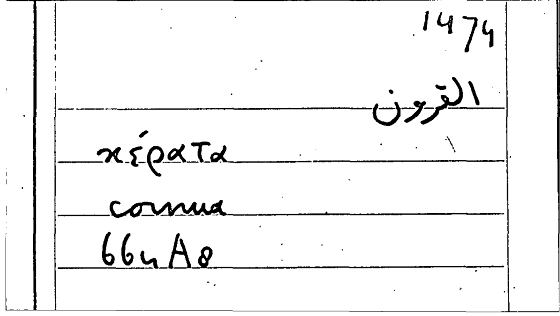 1474
القرون
κέρατα
cornua
66u A8